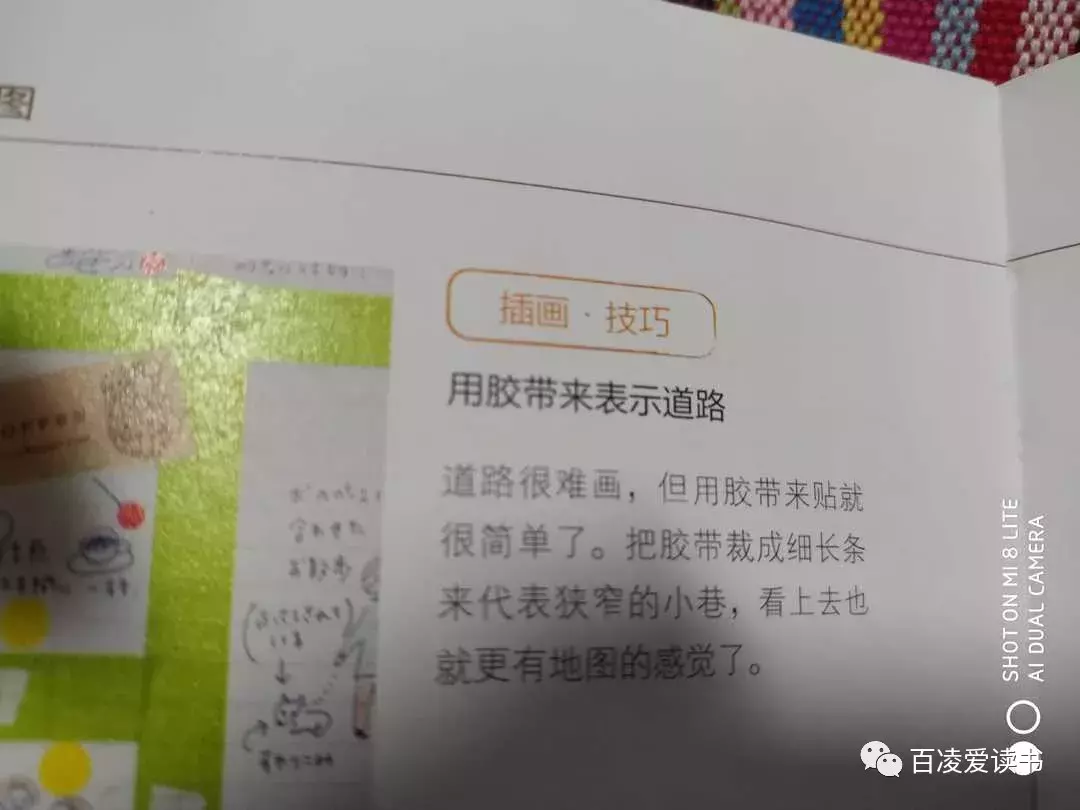 图
插画·技巧
用胶带来表示道路
道路很难画，但用胶带来贴就
很简单了。把胶带裁成细长条
来代表狭窄的小巷，看上去也
就更有地图的感觉了。
SHOT ON MI 8 LITE
AI DUAL CAMERA
百凌爱读书